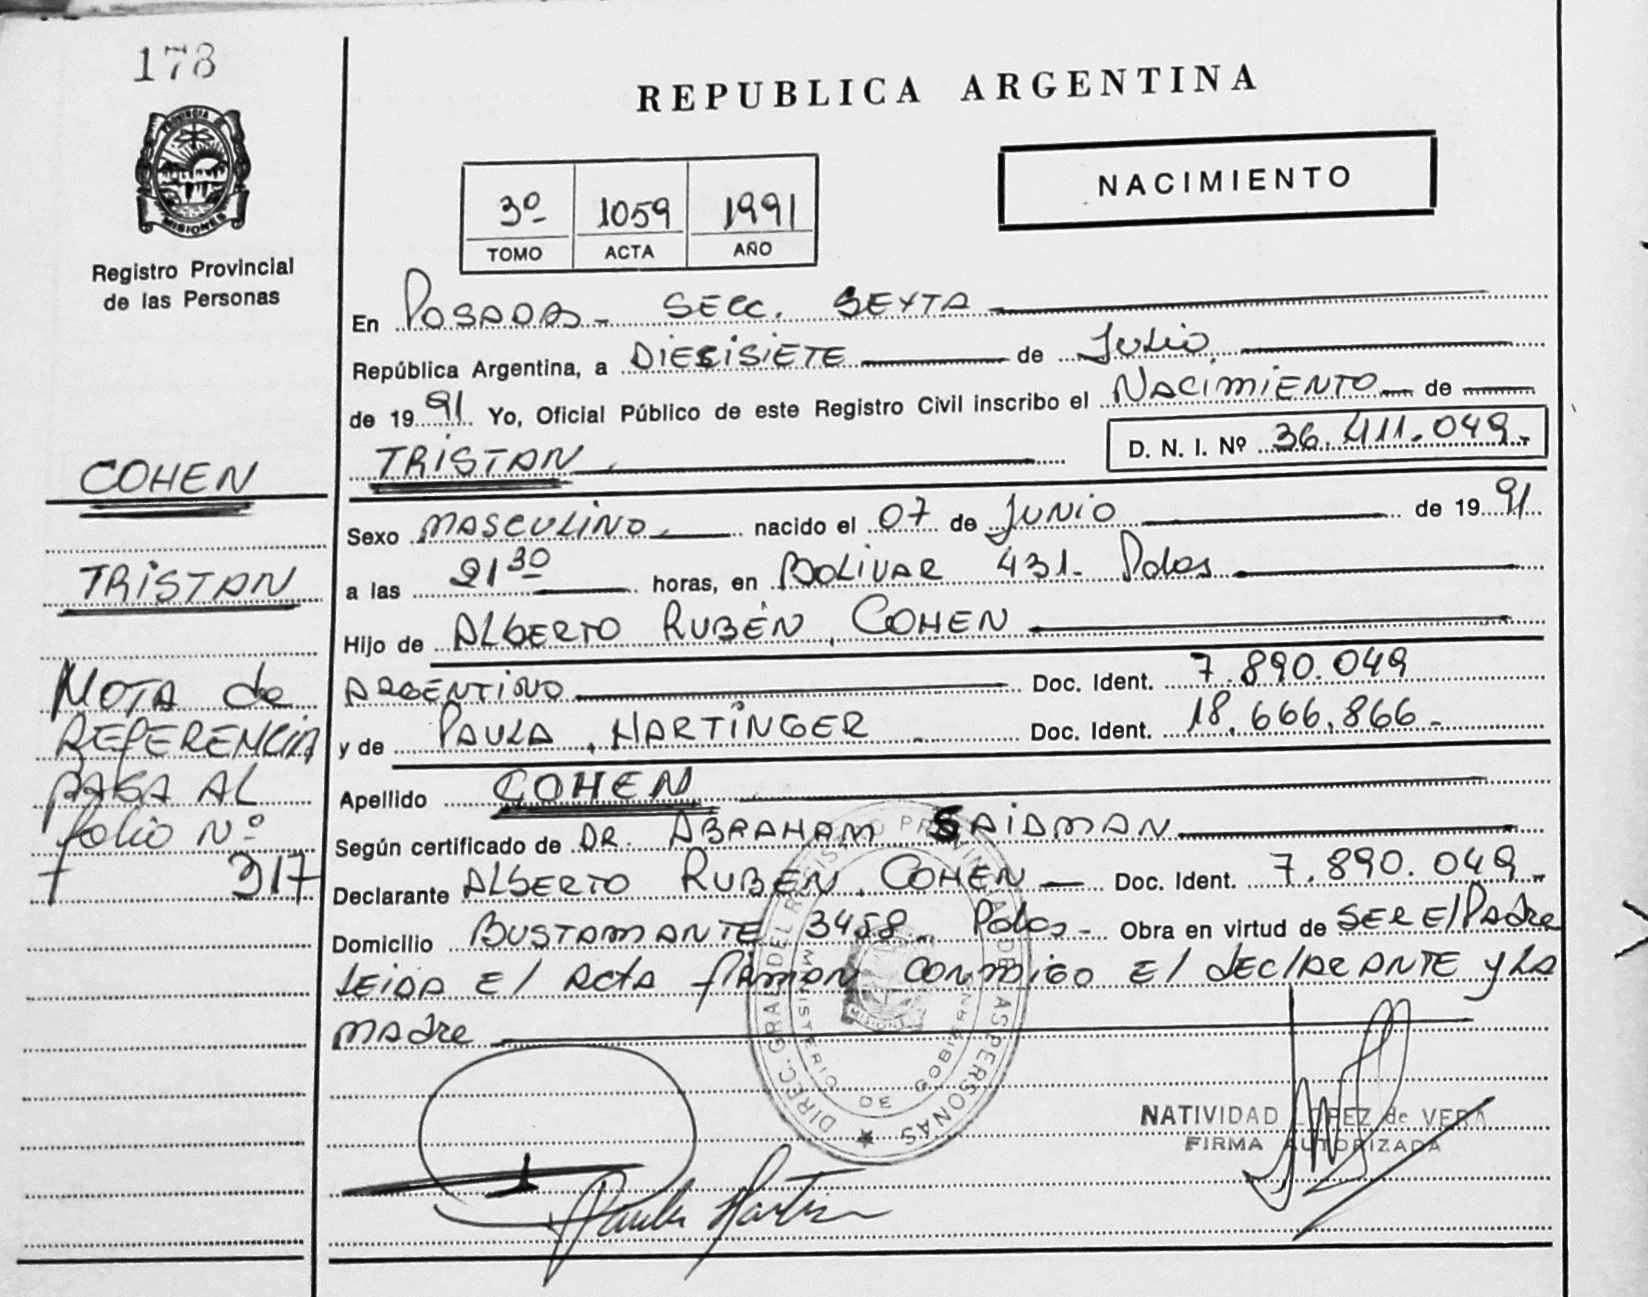 178
REPUBLICA ARGENTINA
PROVINCIA DE
MISIONES
Registro Provincial
de las Personas
3º 1059 1991
TOMO ACTA AÑO
NACIMIENTO
En POSADAS- SECC. SEXTA
República Argentina, a DIECISIETE de Julio
de 1991 Yo, Oficial Público de este Registro Civil inscribo el NACIMIENTO de
TRISTAN D. N. I. Nº 36.411.049.-
COHEN
Sexo MASCULINO nacido el 07 de JUNIO de 1991
TRISTAN
a las 21 30 horas, en BOLIVAR 431- Pdas
Hijo de ALBERTO RUBÉN, COHEN
ARGENTINO Doc. Ident. 7.890.049
y de PAULA, HARTINGER Doc. Ident. 18.666.866-
NOTA de
REFERENCIA
PASA AL
folio Nº
317
Apellido COHEN
Según certificado de DR. ABRAHAM SAIDMAN
Declarante ALBERTO RUBEN, COHEN Doc. Ident. 7.890.049.-
Domicilio BUSTAMANTE 3458 Pdas- Obra en virtud de SER El Padre
LEIDA El Acta firman CONMIGO El declARANTE y LA
madre
DIREC. GRAL DEL REGISTRO PROVINCIAL DE LAS PERSONAS
MINISTERIO DE GOBIERNO
MISIONES
NATIVIDAD LOPEZ de VERA
FIRMA AUTORIZADA
Paula Hartin